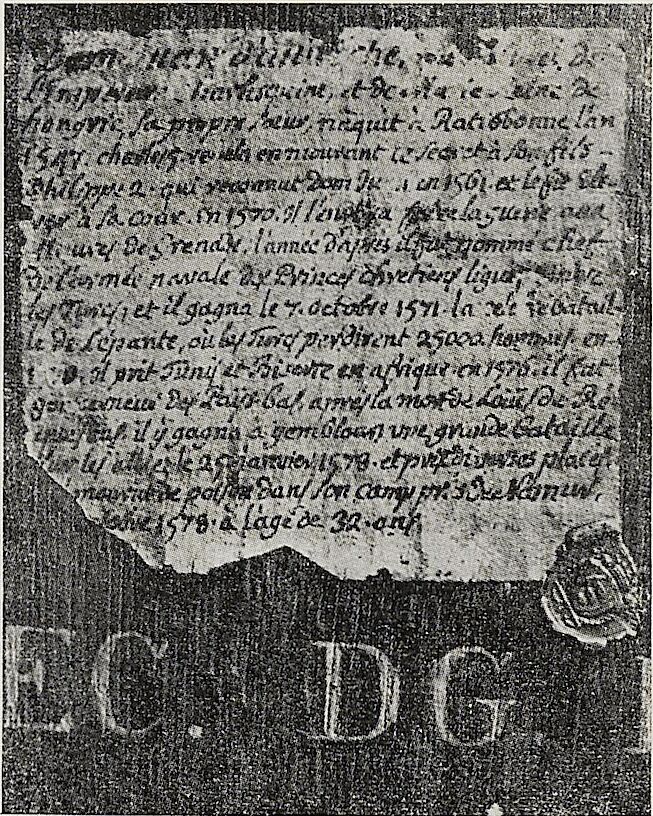 Dom Juan d'autriche, de
L'empereur Charlesquint, et de Marie Reine de
hongrie, sa propre soeur, naquit à Ratisbonne l'an
1547. charles 5. revela en mourant ce secret à son fils
Philippe 2. qui reconnut Dom Ju en 1561. et le fit éle-
ver à sa cour. En 1570. il l'envoya faire la guerre aux
Maures de Grenade. l'année d'après il fut nommé chef
de l'armée navale des Princes chretiens ligués contre
les Turcs, et il gagna le 7. octobre 1571. la celebre batail-
le de Lépante, où les Turcs perdirent 25000. hommes. en
il prit Tunis et Biserte en afrique. en 1576. il fut
gouverneur des Païs-bas, apres la mort de Louis de Re
il y gagna à gemblours une grande bataille
sur les le 25 janvier 1578. et prit diverses places.
mourut de poison dans son camp près de Namur,
1578. à l'age de 32. ans
EC. DG.